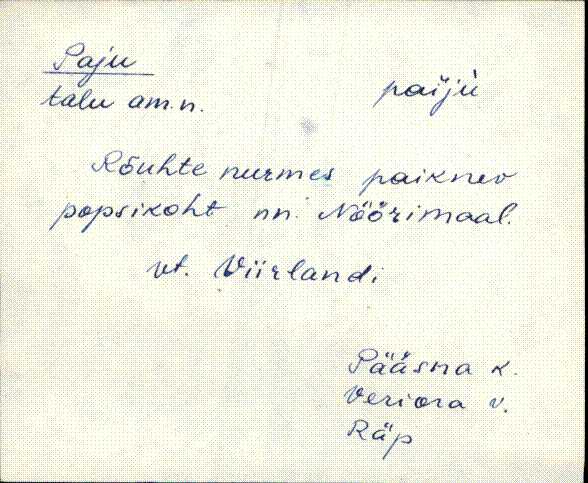 Paju
talu am.n. paijù
Rõuhte nurmes paiknev
popsikoht nn. Nöörimaal.
vt. Viirlandi
Pääsna k.
Veriora v.
Räp